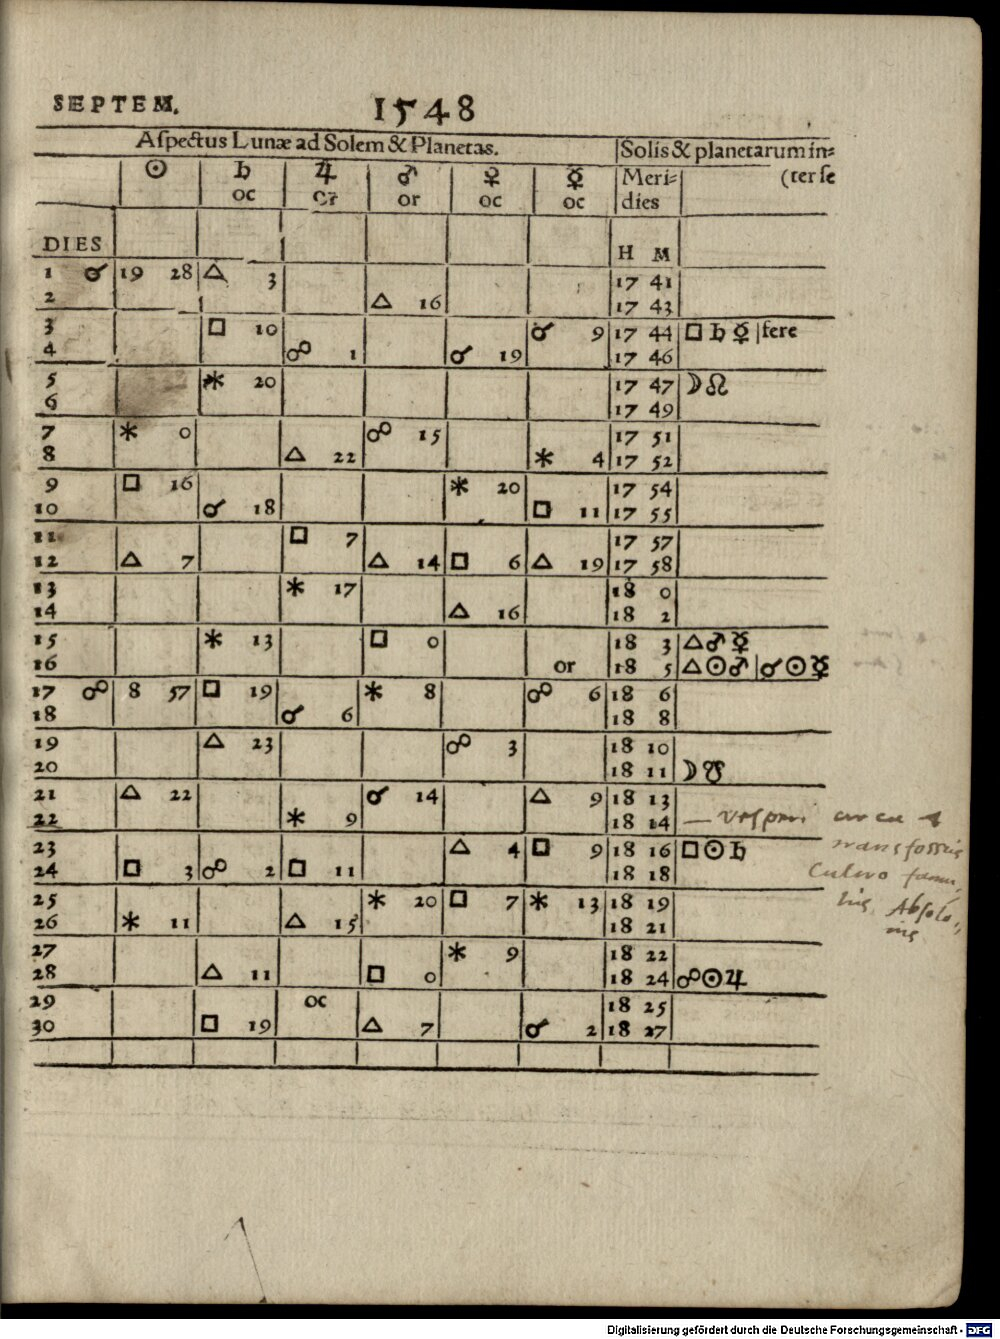 SEPTEM. 1548
Aſpectus Lunæ ad Solem & Planetas. Solis & planetarum in=
☉ ♄ ♃ ♂ ♀ ☿ Meri= (ter ſe
oc or or oc oc dies
DIES H M
1 ☌ 19 28 △ 3 17 41
2 △ 16 17 43
3 □ 10 ☌ 9 17 44 □ ♄ ☿ | fere
4 ☍ 1 ☌ 19 17 46
5 ⚹ 20 17 47 ☽ ☊
6 17 49
7 ⚹ 0 ☍ 15 17 51
8 △ 22 ⚹ 4 17 52
9 □ 16 ⚹ 20 17 54
10 ☌ 18 □ 11 17 55
11 □ 7 17 57
12 △ 7 △ 14 □ 6 △ 19 17 58
13 ⚹ 17 18 0
14 △ 16 18 2
15 ⚹ 13 □ 0 18 3 △ ♂ ☿
16 or 18 5 △ ☉ ♂ | ☌ ☉ ☿
17 ☍ 8 57 □ 19 ⚹ 8 ☍ 6 18 6
18 ☌ 6 18 8
19 △ 23 ☍ 3 18 10
20 18 11 ☽ ☋
21 △ 22 ☌ 14 △ 9 18 13
22 ⚹ 9 18 14 — vesperi circa 4
23 △ 4 □ 9 18 16 □ ☉ ♄ transfossus
24 □ 3 ☍ 2 □ 11 18 18 Cultro famu,
25 ⚹ 20 □ 7 ⚹ 13 18 19 lus Absolo-
26 ⚹ 11 △ 15 18 21 nis
27 ⚹ 9 18 22
28 △ 11 □ 0 18 24 ☍ ☉ ♃
29 oc 18 25
30 □ 19 △ 7 ☌ 2 18 27
Digitalisierung gefördert durch die Deutsche Forschungsgemeinschaft - DFG